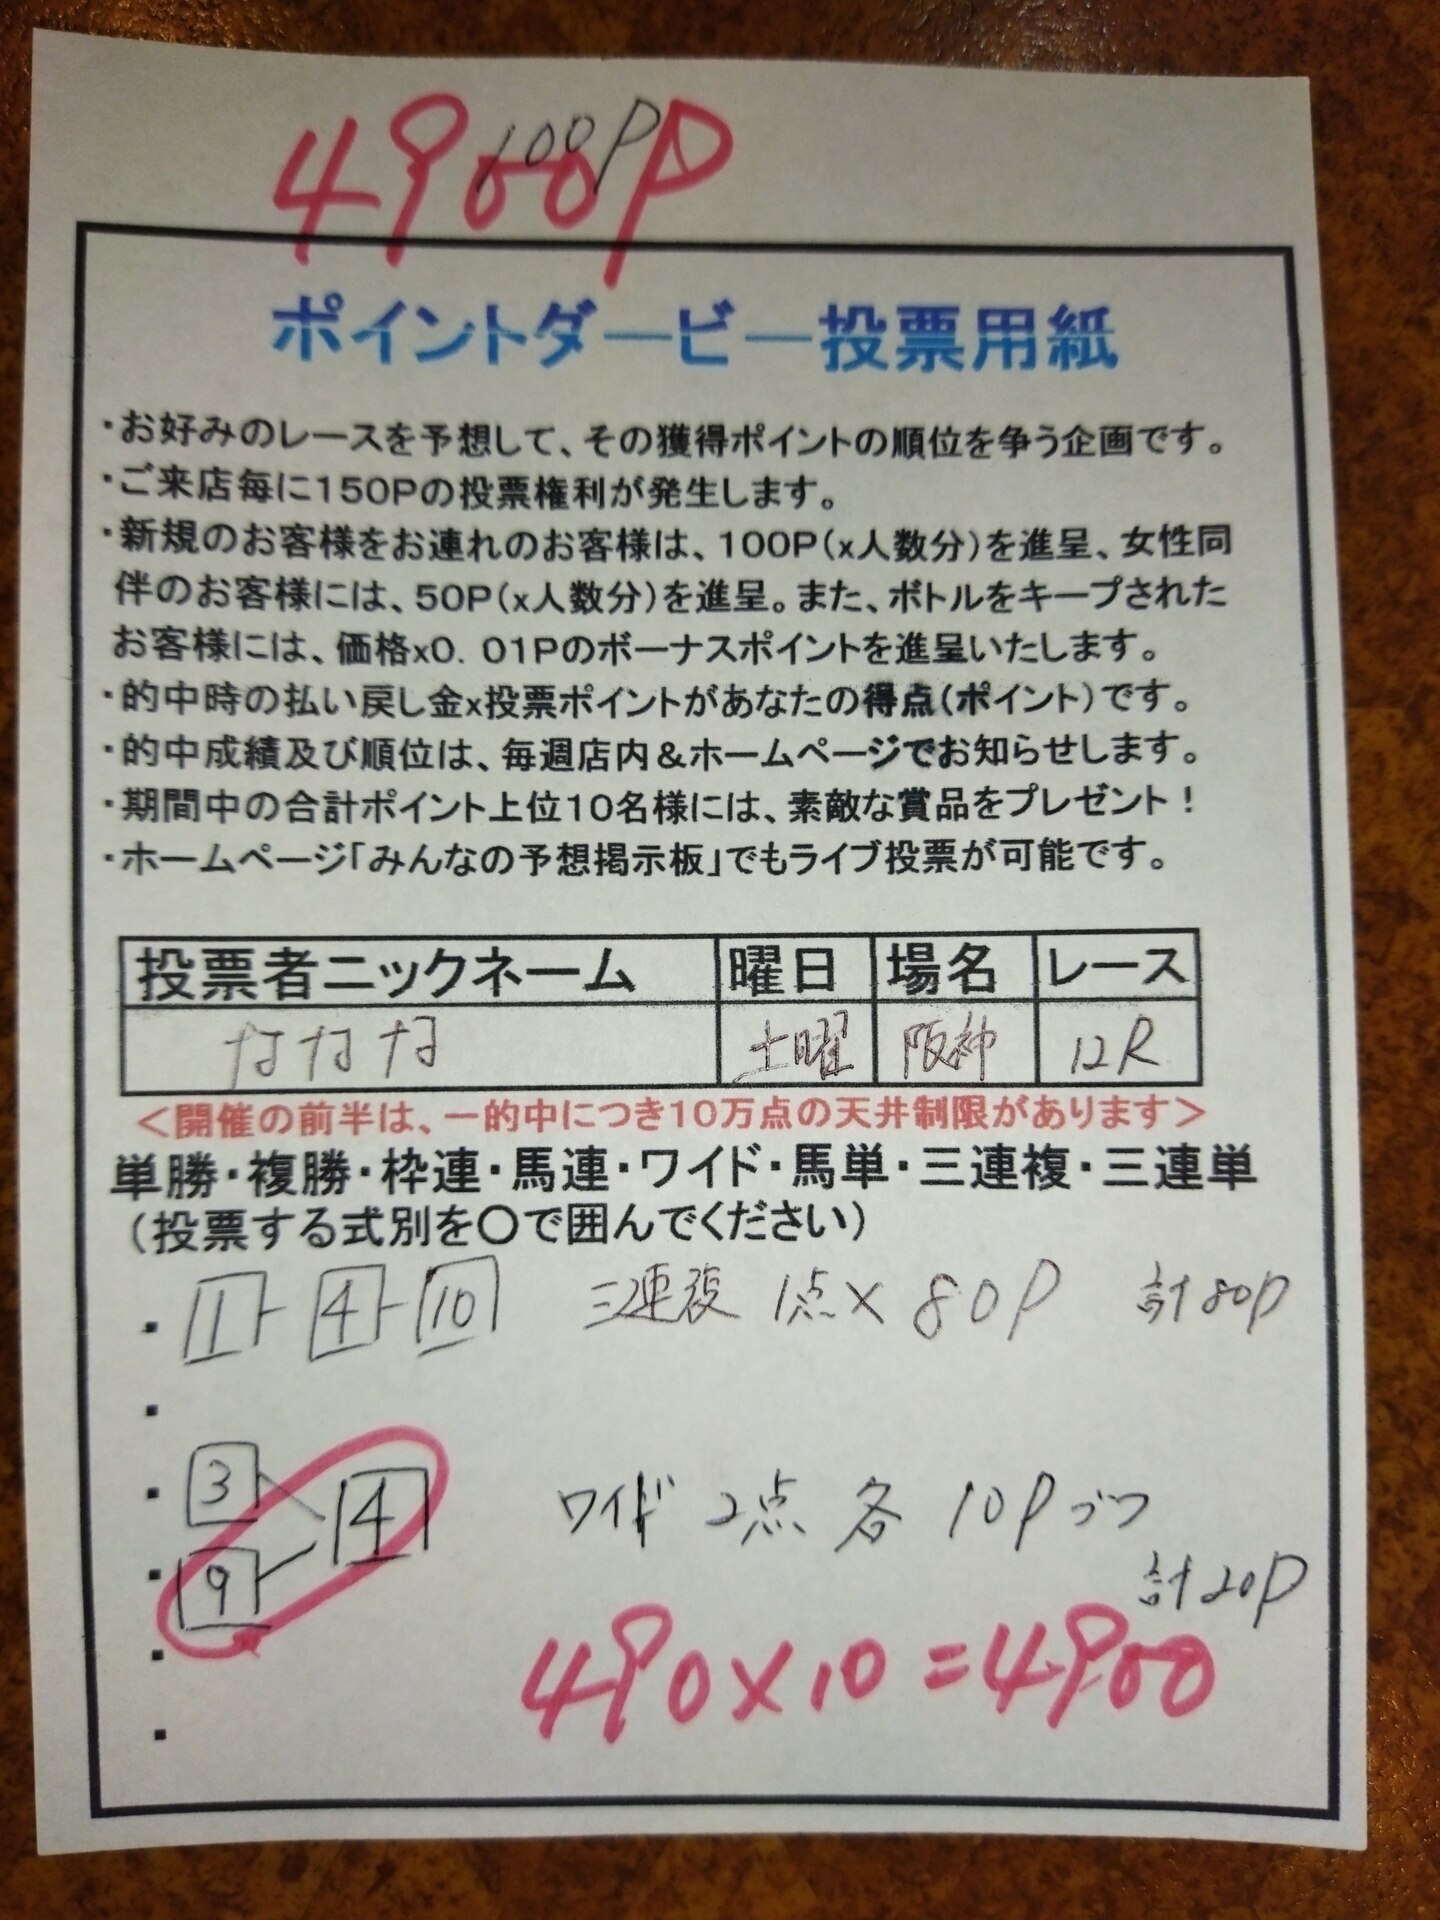 4900P
100P
ポイントダービー投票用紙
・お好みのレースを予想して、その獲得ポイントの順位を争う企画です。
・ご来店毎に150Pの投票権利が発生します。
・新規のお客様をお連れのお客様は、100P(x人数分)を進呈、女性同
伴のお客様には、50P(x人数分)を進呈。また、ボトルをキープされた
お客様には、価格x0.01Pのボーナスポイントを進呈いたします。
・的中時の払い戻し金x投票ポイントがあなたの得点(ポイント)です。
・的中成績及び順位は、毎週店内&ホームページでお知らせします。
・期間中の合計ポイント上位10名様には、素敵な賞品をプレゼント!
・ホームページ「みんなの予想掲示板」でもライブ投票が可能です。
投票者ニックネーム 曜日 場名 レース
ななな 土曜 阪神 12R
<開催の前半は、一的中につき10万点の天井制限があります>
単勝・複勝・枠連・馬連・ワイド・馬単・三連複・三連単
(投票する式別を○で囲んでください)
・ 11-4-10 三連複 1点×80P 計80P
・
・ 3 4 ワイド 2点 各 10Pづつ
・ 9 計20P
・ 490×10=4900
・